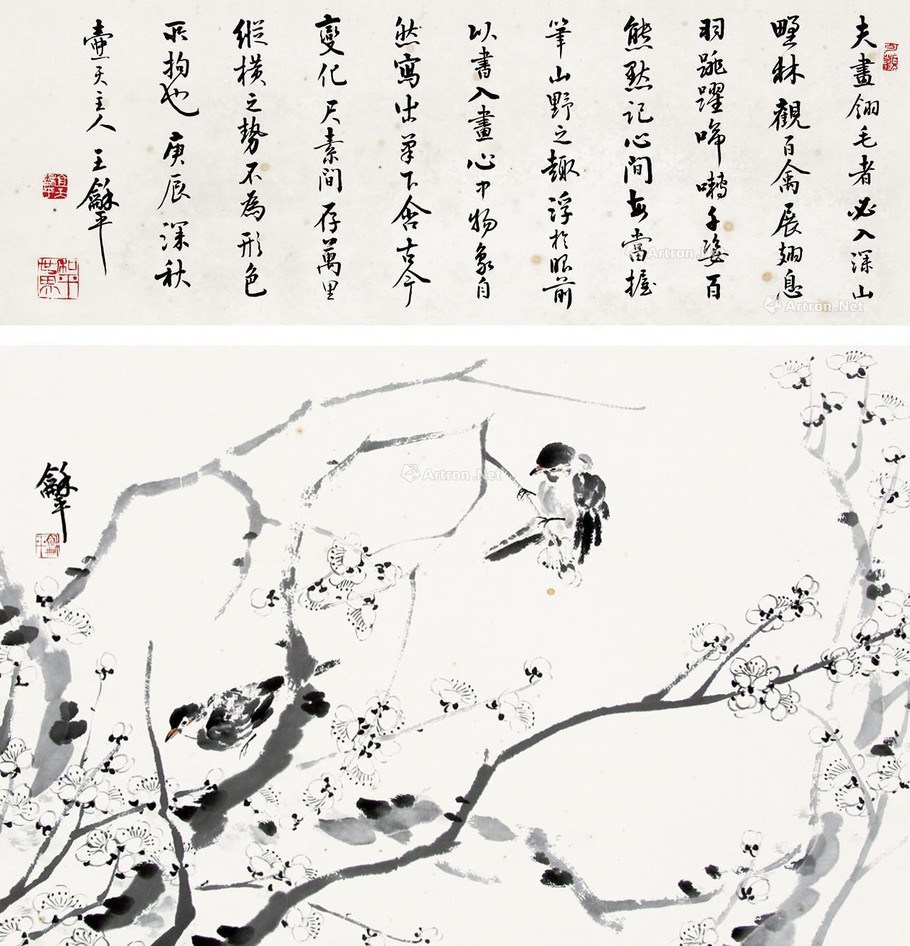 夫畫翎毛者必入深山
野林觀百禽展翅息
羽跳躍啼囀千姿百
態默記心間每當握
筆山野之趣浮於眼前
以書入畫心中物象自
然寫出筆下含古今
變化尺素間存萬里
縱橫之勢不為形色
所拘也庚辰深秋
壺天主人王龢平
和平世界
龢平
龢平
Artron.Net
Artron.Net
Artron.Net
Artron.Net